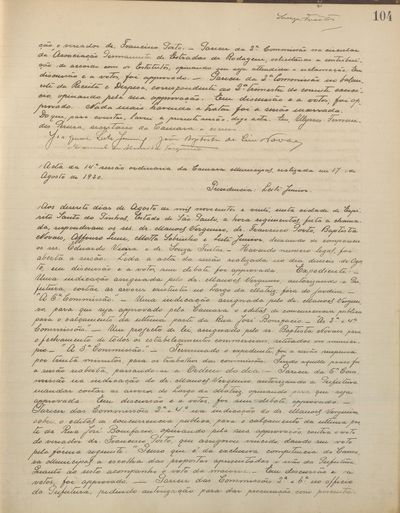 104
ção e vereador dr. Francisco Porto. - Parecer da 2ª Commissão na circular
da Associação Permanente de Estradas de Rodagem, solicitando a contribui-
ção, de accordo com os Estatutos, opinando que seja attendida a reclamação. Em
discussão e a votos, foi approvado. - Parecer da 2ª Commissão no balan-
cete da Receita e Despeza, correspondente ao 2º trimestre do corrente exerci-
cio, opinando pela sua approvação. Em discussão e a votos, foi ap-
provado. Nada mais havendo a tratar foi a sessão encerrada.
Do que, para constar, lavrei a presente acta. Eu, Ulysses
secretario da Camara o escrevi.
Acta da 14ª sessão ordinaria da Camara Municipal, realizada em 17 de
Agosto de 1920.
Presidencia: Leite Junior.
Aos dezesete dias de Agosto de mil novecentos e vinte, nesta cidade de Espi-
rito Santo do Pinhal, Estado de São Paulo, á hora regimental, feita a chama-
da, responderam os srs. dr. Manoel Vergueiro, dr. Francisco Porto, Baptista
Novaes, Affonso Leme, e Leite Junior, deixando de comparecer
os srs. Eduardo Vieira e de Souza Freitas. Havendo numero legal, foi
aberta a sessão. Lida a acta da sessão realizada no dia de Agos-
to, em discussão e a votos, sem debate foi approvada. Expediente: -
Uma indicação assignada pelo dr. Manoel Vergueiro, autorizando a Pre-
feitura, cortar as arvores existentes no largo da Matriz, fóra do jardim. -
"A 6ª Commissão". - Uma indicação assignada pelo dr. Manoel Verguei-
ro para que seja approvado pela Camara o edital de concorrencia publica
para o calçamento da ultima parte da Rua José Bonifacio. - "A 3ª e 4ª
Commissões". - Um projecto de lei assignado pelo sr. Baptista Novaes para
o fechamento de todos os estabelecimentos commerciaes, situados no munici-
pio. - "A 3ª Commissão". - Terminado o expediente foi a sessão suspensa
por trinta minutos para os trabalhos das commissões. Findo aquelle praso foi
a sessão reaberta, passando-se á Ordem do dia. - Parecer da 6ª Com-
missão na indicação do dr. Manoel Vergueiro autorizando a Prefeitura
mandar cortar as arvores do largo da Matriz, opinando para que seja
approvada. Em discussão e a votos, foi sem debate, approvado. -
Parecer das Commissões 3ª e 4ª na indicação do dr. Manoel Vergueiro
sobre o edital de concorrencia publica para o calçamento da ultima par-
te da Rua José Bonifacio, opinando pela sua approvação, contra o voto
do vereador dr. Francisco Porto, que assignou vencido, dando seu voto
pela fórma seguinte: "Penso que é da exclusiva competencia da Cama-
ra Municipal a escolha das propostas apresentadas e não da Prefeitura.
Quanto ao resto acompanho o voto da maioria. - Em discussão e a
votos, foi approvado. - Parecer das Commissões 2ª e 6ª no officio
da Prefeitura, pedindo autorização para dar